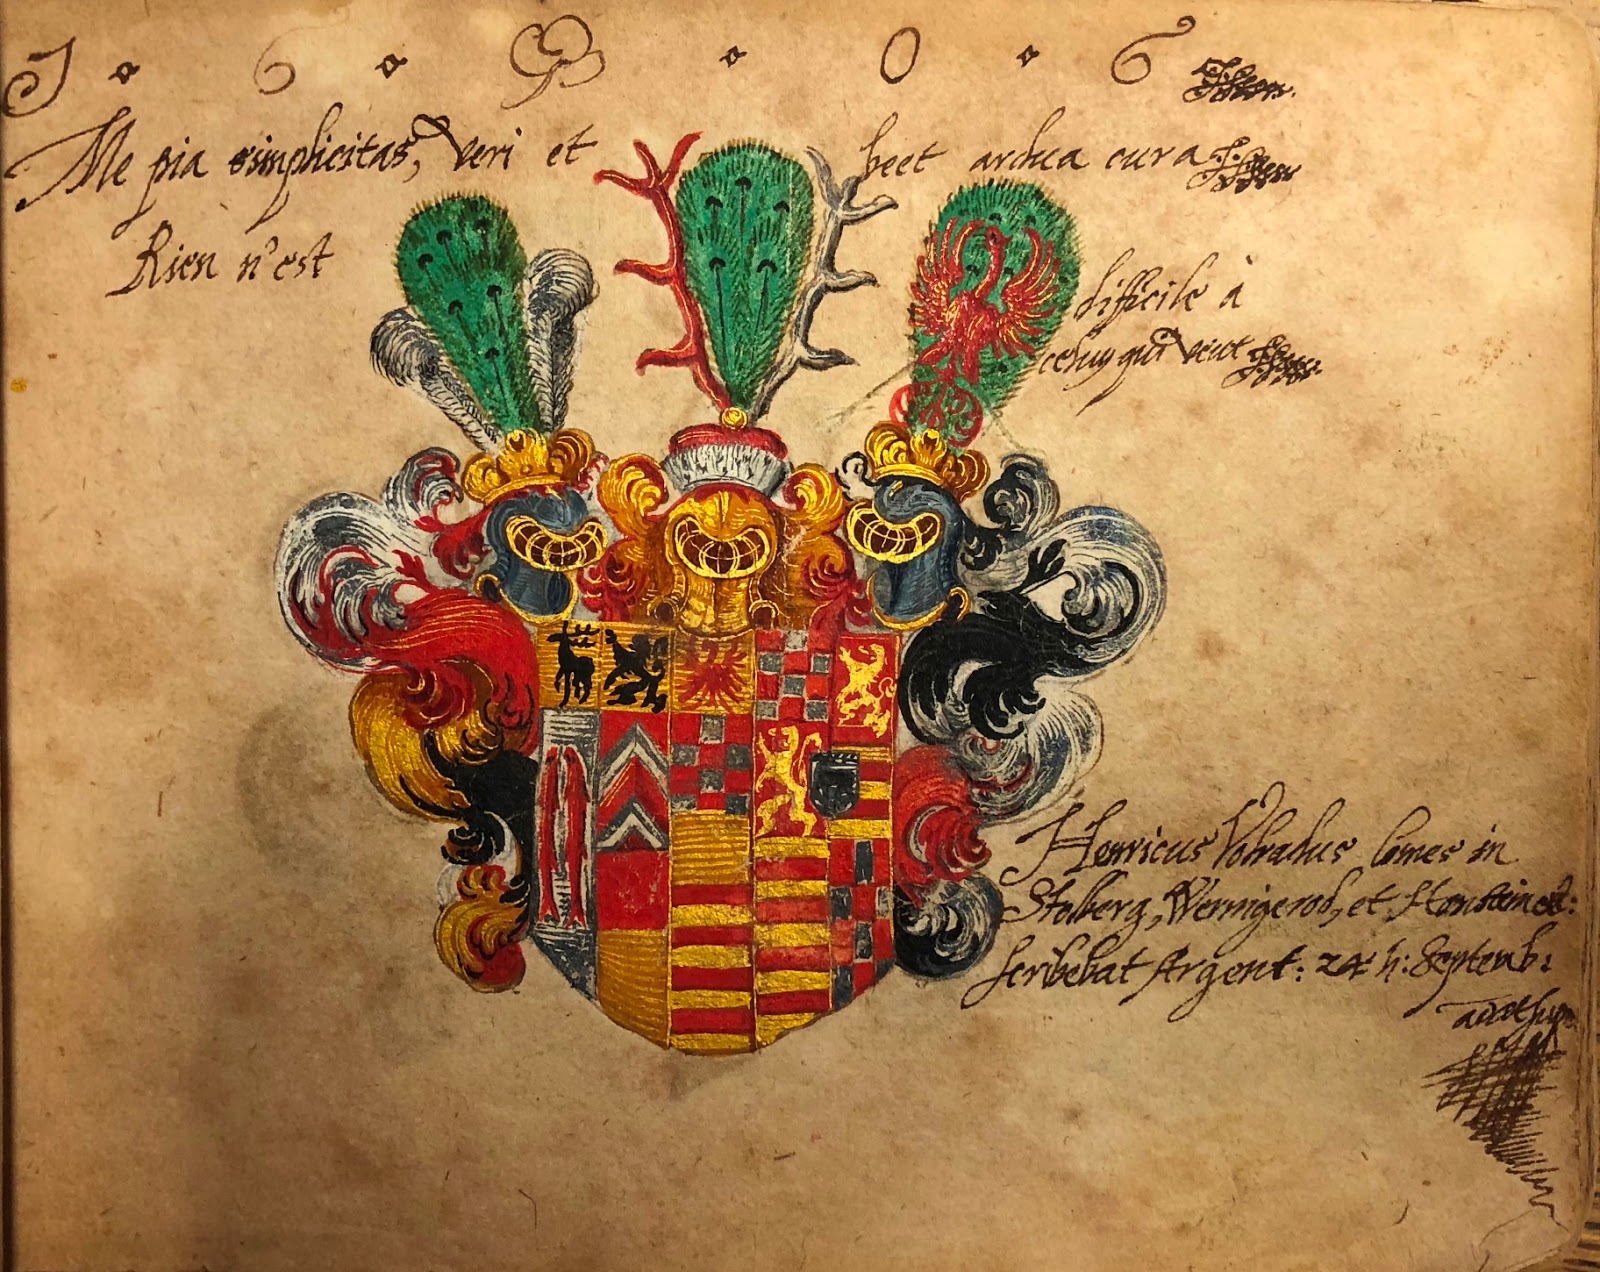 1 6 0 6
Me pia simplicitas, Veri et beet ardua cura
Rien n'est difficile à
celuy qui Veut
Henricus Volradus Comes in
Stolberg, Wernigerod, et Honstein etc:
scribebat Argent: 24 h: Septemb: